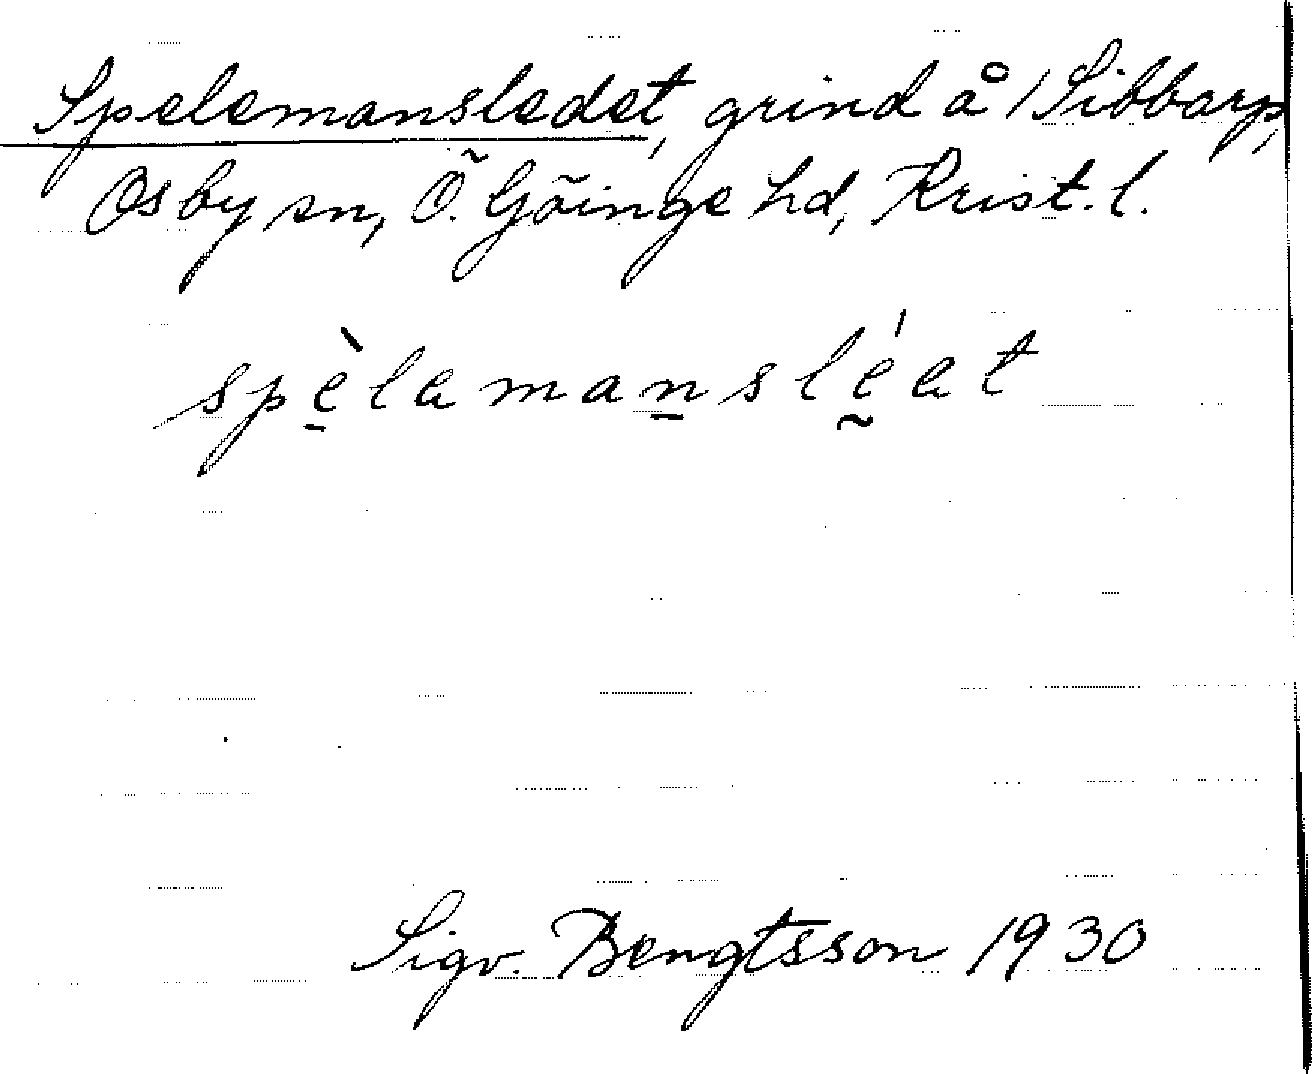 Spelemansledet, grind å 1 Sibbarp,
Osby sn, Ö. Göinge hd, Krist. l.
spè̱lamaṉslḛ́at
Sigv. Bengtsson 1930